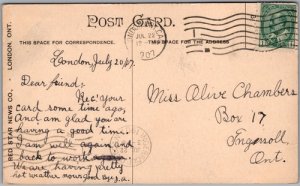 POST CARD.
THIS SPACE FOR CORRESPONDENCE.
THIS SPACE FOR THE ADDRESS
RED STAR NEWS CO. LONDON, ONT.
JUL 22
London July 20, 07.
Dear friend;
Rec'd your
card some time ago,
and am glad you are
having a good time.
I am well again and
back to work
We are having pretty
hot weather now good bye
Miss Alive Chambers
Box 17
Ingersoll
Ont.